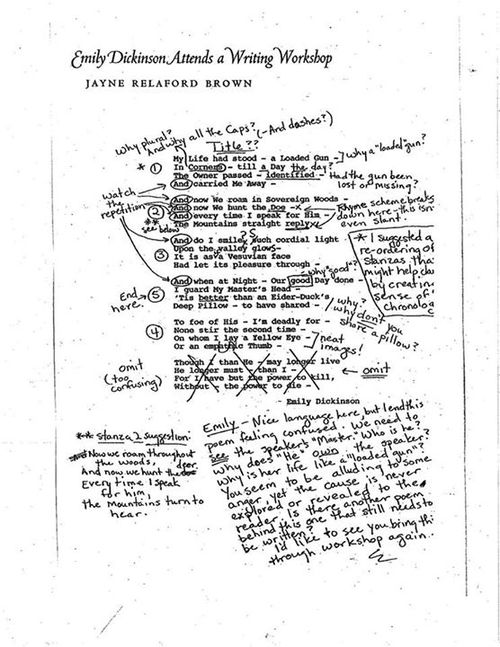 Emily Dickinson Attends a Writing Workshop
JAYNE RELAFORD BROWN
Why plural?
And why all the Caps? (-And dashes?)
Title??
* ① My Life had stood - a Loaded Gun - why a "loaded" gun?
In Corners - till a Day the day?
The Owner passed - identified - Had the gun been
And carried Me Away - lost or missing?
watch
the
repetition
And now We roam in Sovereign Woods -
② And now We hunt the Doe -x Rhyme scheme breaks
And every time I speak for Him - down here - this isn't
** see below The Mountains straight reply - even slant.
And do I smile, such cordial light
③ Upon the valley glow -
It is as a Vesuvian face
Had let its pleasure through -
* I suggested a
re-ordering of
stanzas. tha
might help cla
by creatin
sense of
chronolog
why "good"?
And when at Night - Our good Day done -
End here. ⑤ I guard My Master's Head -
'Tis better than an Eider-Duck's
Deep Pillow - to have shared -
why?
why don't you
share a pillow?
④ To foe of His - I'm deadly for -
None stir the second time -
On whom I lay a Yellow Eye -
Or an emphatic Thumb -
neat
images!
omit
(too
confusing)
Though I than He - may longer live
He longer must - than I - omit
For I have but the power to kill,
Without - the power to die -
Emily Dickinson
** stanza 2 suggestion:
Now we roam throughout
the woods,
And now we hunt the deer
Every time I speak
for him,
the Mountains turn to
hear.
Emily - Nice language here, but I end this
poem feeling confused. We need to
see the speaker's "Master." Who is he?
Why does "He" own the speaker?
Why is her life like a "loaded gun"?
You seem to be alluding to some
anger, yet the cause is never
explored or revealed to the
reader. Is there another poem
behind this one that still needs to
be written?
I'd like to see you bring thi
through workshop again.